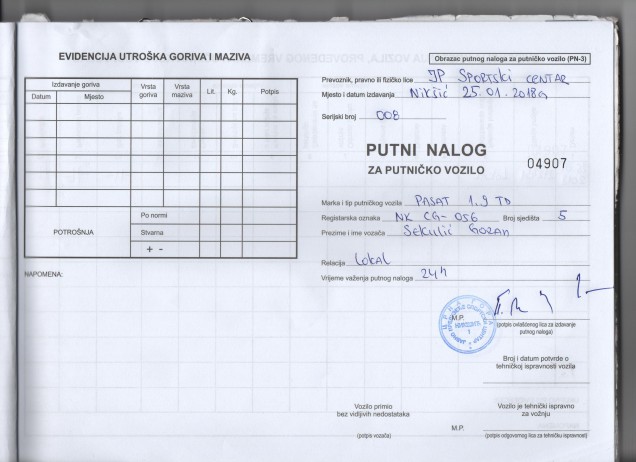 EVIDENCIJA UTROŠKA GORIVA I MAZIVA
Izdavanje goriva
Datum Mjesto Vrsta goriva Vrsta maziva Lit. Kg. Potpis
POTROŠNJA
Po normi
Stvarna
+ -
NAPOMENA:
Obrazac putnog naloga za putničko vozilo (PN-3)
Prevoznik, pravno ili fizičko lice JP SPORTSKI CENTAR
Mjesto i datum izdavanja Nikšić 25.01.2018g
Serijski broj 008
PUTNI NALOG
ZA PUTNIČKO VOZILO
04907
Marka i tip putničkog vozila PASAT 1.9 TD
Registarska oznaka NK CG-056 Broj sjedišta 5
Prezime i ime vozača Sekulić Goran
Relacija Lokal
Vrijeme važenja putnog naloga 24h
M.P.
(potpis ovlašćenog lica za izdavanje
putnog naloga)
Broj i datum potvrde o
tehničkoj ispravnosti vozila
Vozilo primio
bez vidljivih nedostataka
(potpis vozača)
Vozilo je tehnički ispravno
za vožnju
M.P.
(potpis odgovornog lica za tehničku ispravnost)